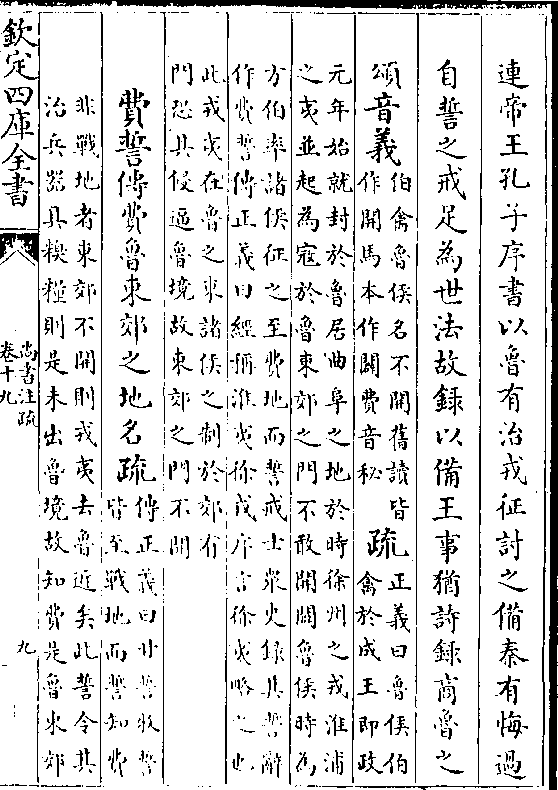 連帝王孔子序書以魯有治戎征討之備秦有悔過
自誓之戒足為世法故録以備王事猶詩録商魯之
頌音義
伯禽魯侯名不開舊讀皆
作開馬本作闢費音秘
疏
正義曰魯侯伯
禽於成王即政
元年始就封於魯居曲阜之地於時徐州之戎淮浦
之夷並起為寇於魯東郊之門不敢開闢魯侯時為
方伯率諸侯征之至費地而誓戒士衆史録其誓辭
作費誓傳正義曰經稱淮夷徐戎序言徐夷略之也
此戎夷在魯之東諸侯之制於郊有
門恐其侵逼魯境故東郊之門不開
費誓傳費魯東郊之地名疏
傳正義曰甘誓牧誓
皆至戰地而誓知費
非戰地者東郊不開則戎夷去魯近矣此誓令其
治兵器具糗糧則是未出魯境故知費是魯東郊
欽定四庫全書
尚書注疏
卷十九
九